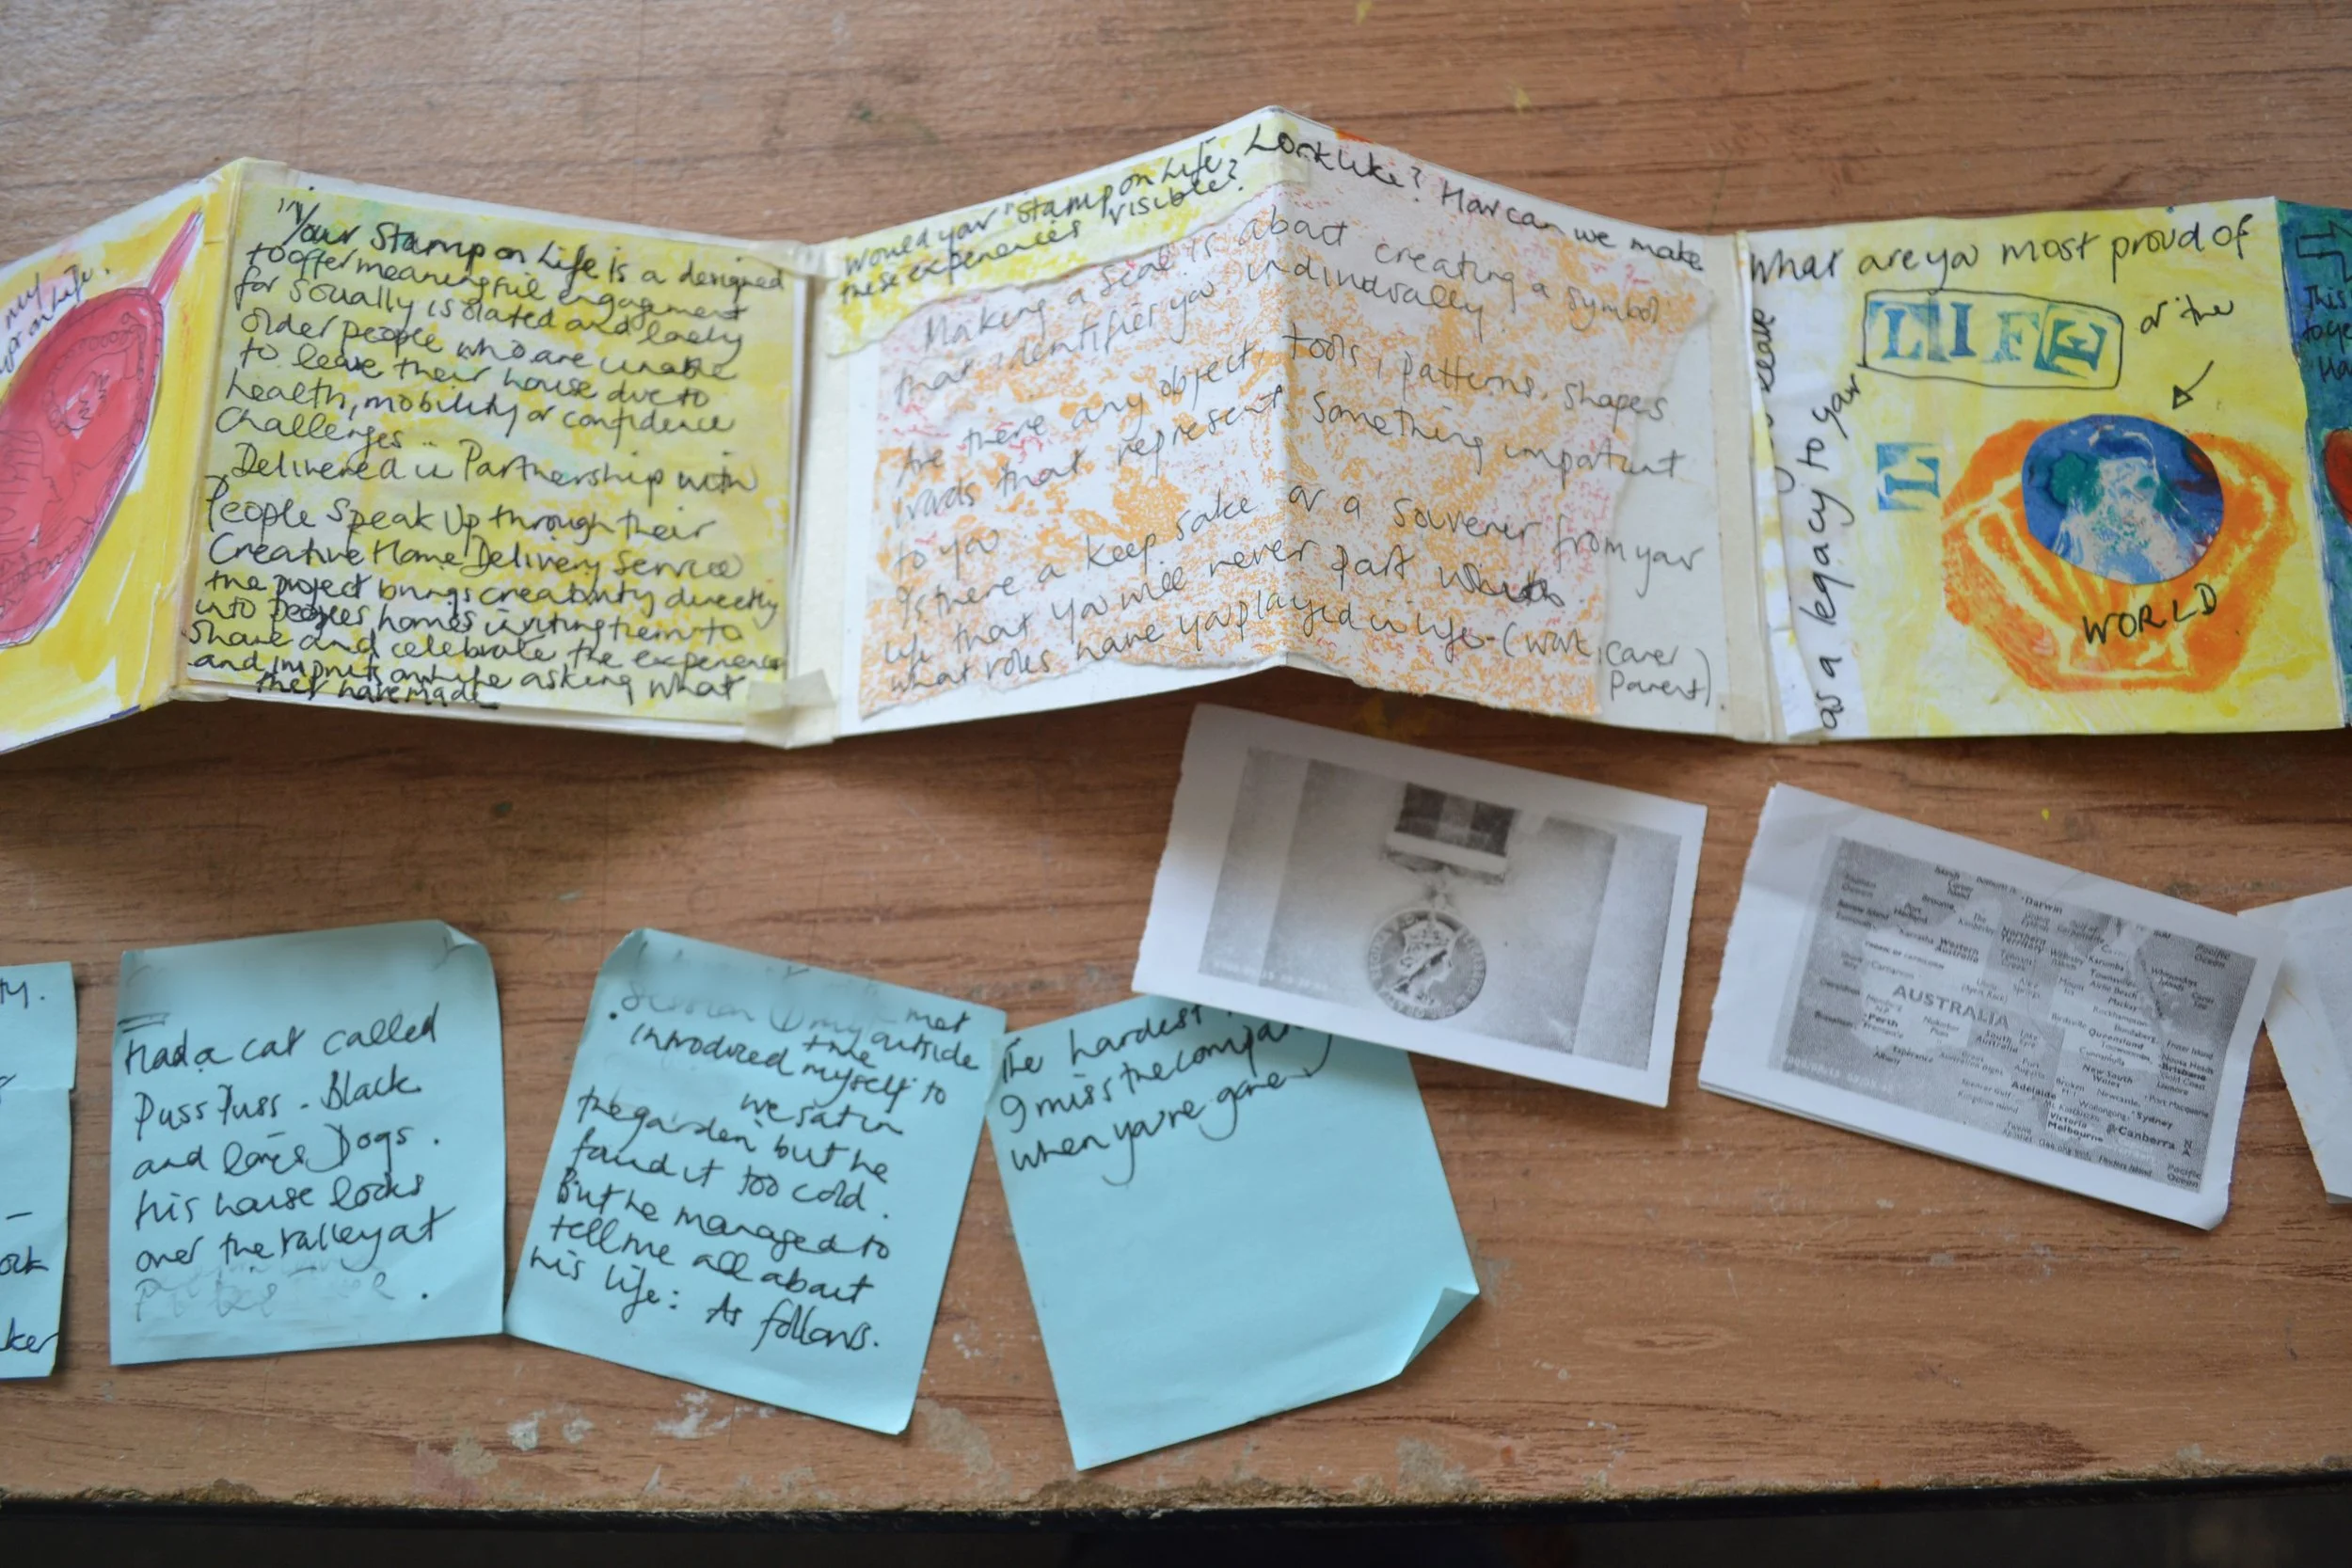 my
"Your Stamp on Life is a designed
to offer meaningful engagement
for socially isolated and lonely
older people who are unable
to leave their house due to
health, mobility or confidence
Challenges..
Delivered in Partnership with
People Speak Up through their
Creative Home Delivery Service
the project brings creativity directly
into peoples homes inviting them to
share and celebrate the experiences
and imprints on life asking what
they have made
would your "Stamp on Life" Look like? How can we make
these experiences visible?
Making a Seal is about creating a symbol
that identifies you individually
Are there any object, tools, patterns, shapes
words that represent something important
to you
Is there a keep sake or a souvenir from your
life that you will never part with
what roles have you played in life - (work, carer
Parent).
as a legacy to your
What are you most proud of
LIFE
or the
L
WORLD
This
Ha
ty.
ork
ker
Had a cat called
Puss Puss - Black
and loves Dogs.
His house looks
over the valley at
Session 1 my met
introduced myself to
the outside
we sat in
the garden but he
found it too cold.
But he managed to
tell me all about
his life: As follows.
The hardest
I miss the company
when you're gone
AUSTRALIA
Darwin
Broome
The Kimberley
Northern Territory
Western Australia
Carnarvon
Perth
Esperance
Albany
South Australia
Adelaide
Queensland
Brisbane
Gold Coast
New South Wales
Newcastle
Port Macquarie
Wollongong
Sydney
Canberra
Victoria
Melbourne
Pacific Ocean
Pacific Ocean